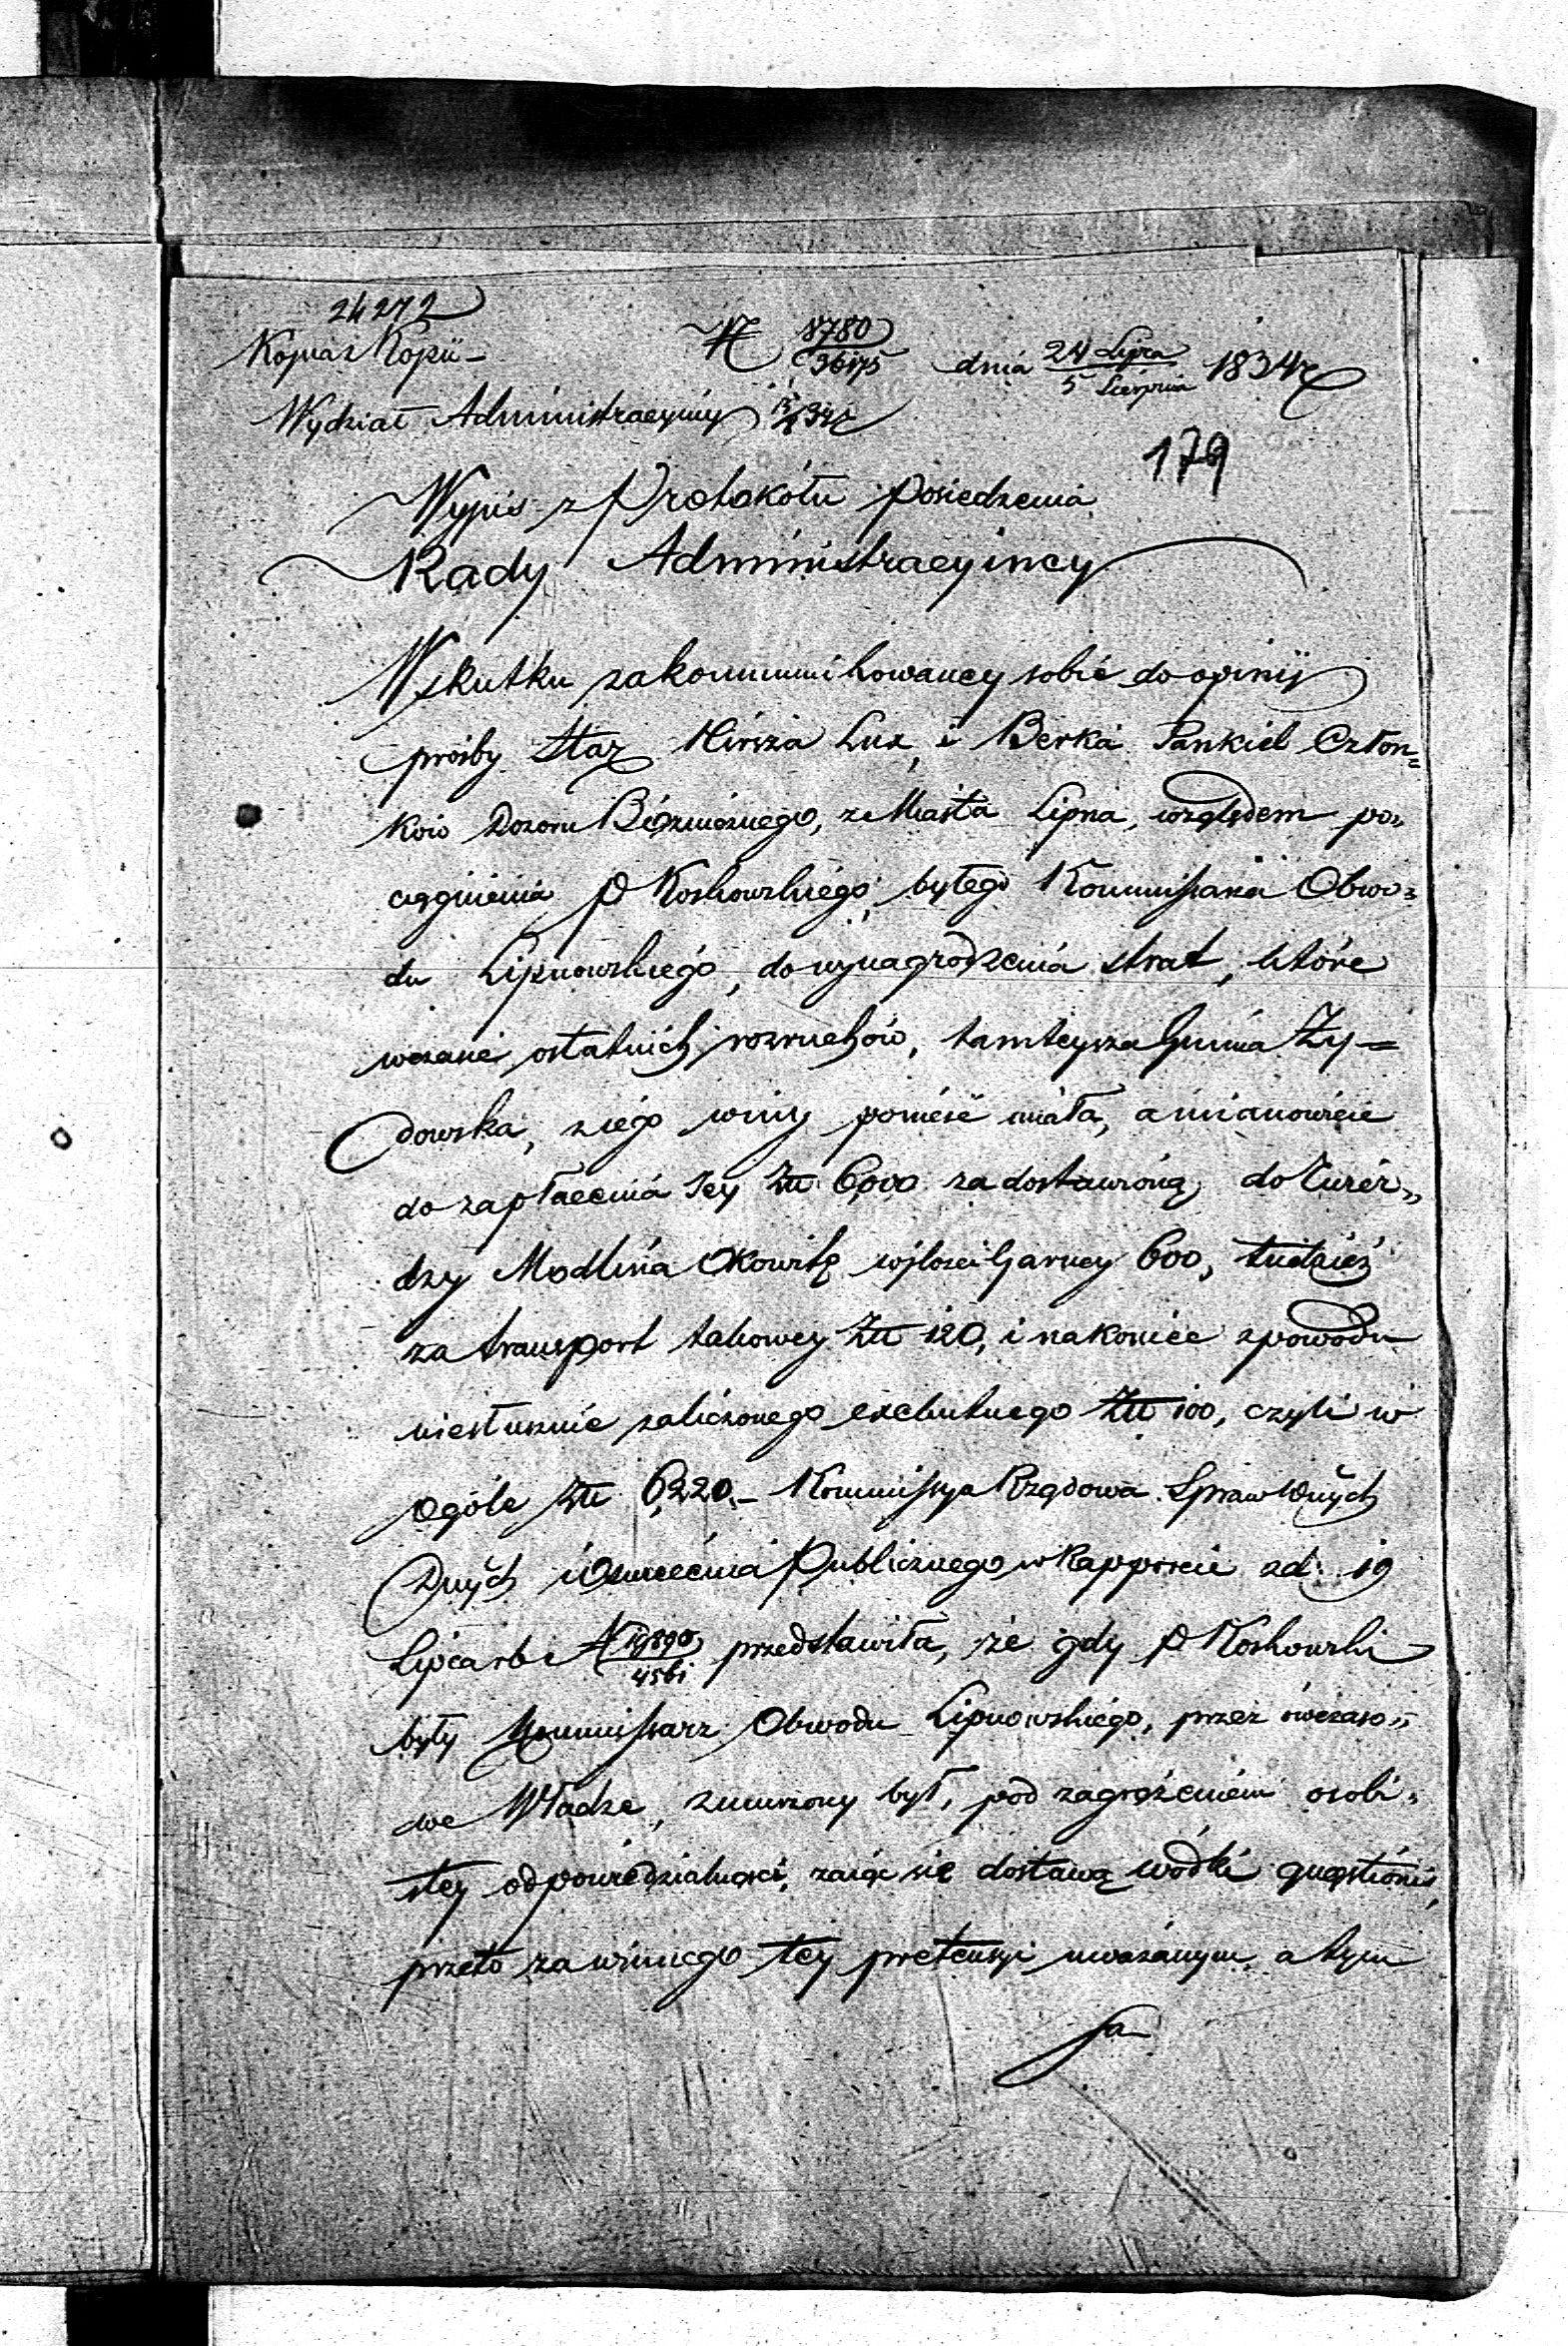 24272
Kopia z Kopii –
N 8780/36175 dnia 24 Lipca/5 Sierpnia 1834 r
Wydział Administracyiny
179
Wypis z Protokółu Posiedzenia
Rady Administracyiney
W skutku zakommunikowaney sobie do opinij
prośby Staz Hirsza Lux, i Berka Jankiel Człon=
ków Dozoru Bóźniczego, z Miasta Lipna, względem po„
ciągnienia P Koskowskiego, byłego Kommissarza Obwo„
du Lipnowskiego, do wynagrodzenia strat, które
wczasie ostatnich rozruchów, tamteysza Gmina Ży=
dowska, z iego winy ponieść miała, a mianowicie
do zapłacenia Jey Złł 6000 za dostawioną do Twier„
dzy Modlina Okowitę w ilości Garncy 600, tudzież
za transport takowey Złł 120, i nakoniec z powodu
niesłusznie zaliczonego exekutnego Złł 100, czyli w
ogóle Złł 6220. – Kommissya Rządowa Spraw Wnych
Dnych i Oświecenia Publicznego w Rapporcie z d. 19
Lipca r b N 19890/4561 przedstawiła, że gdy P Koskowski
były Kommissarz Obwodu Lipnowskiego, przez ówczaso„
we Władze, zmuszony był, pod zagrożeniem osobi„
stey odpowiedzialności, zaiąć się dostawą wódki quaestionis,
przeto za winnego tey pretensyi uważanym, a tym
sa